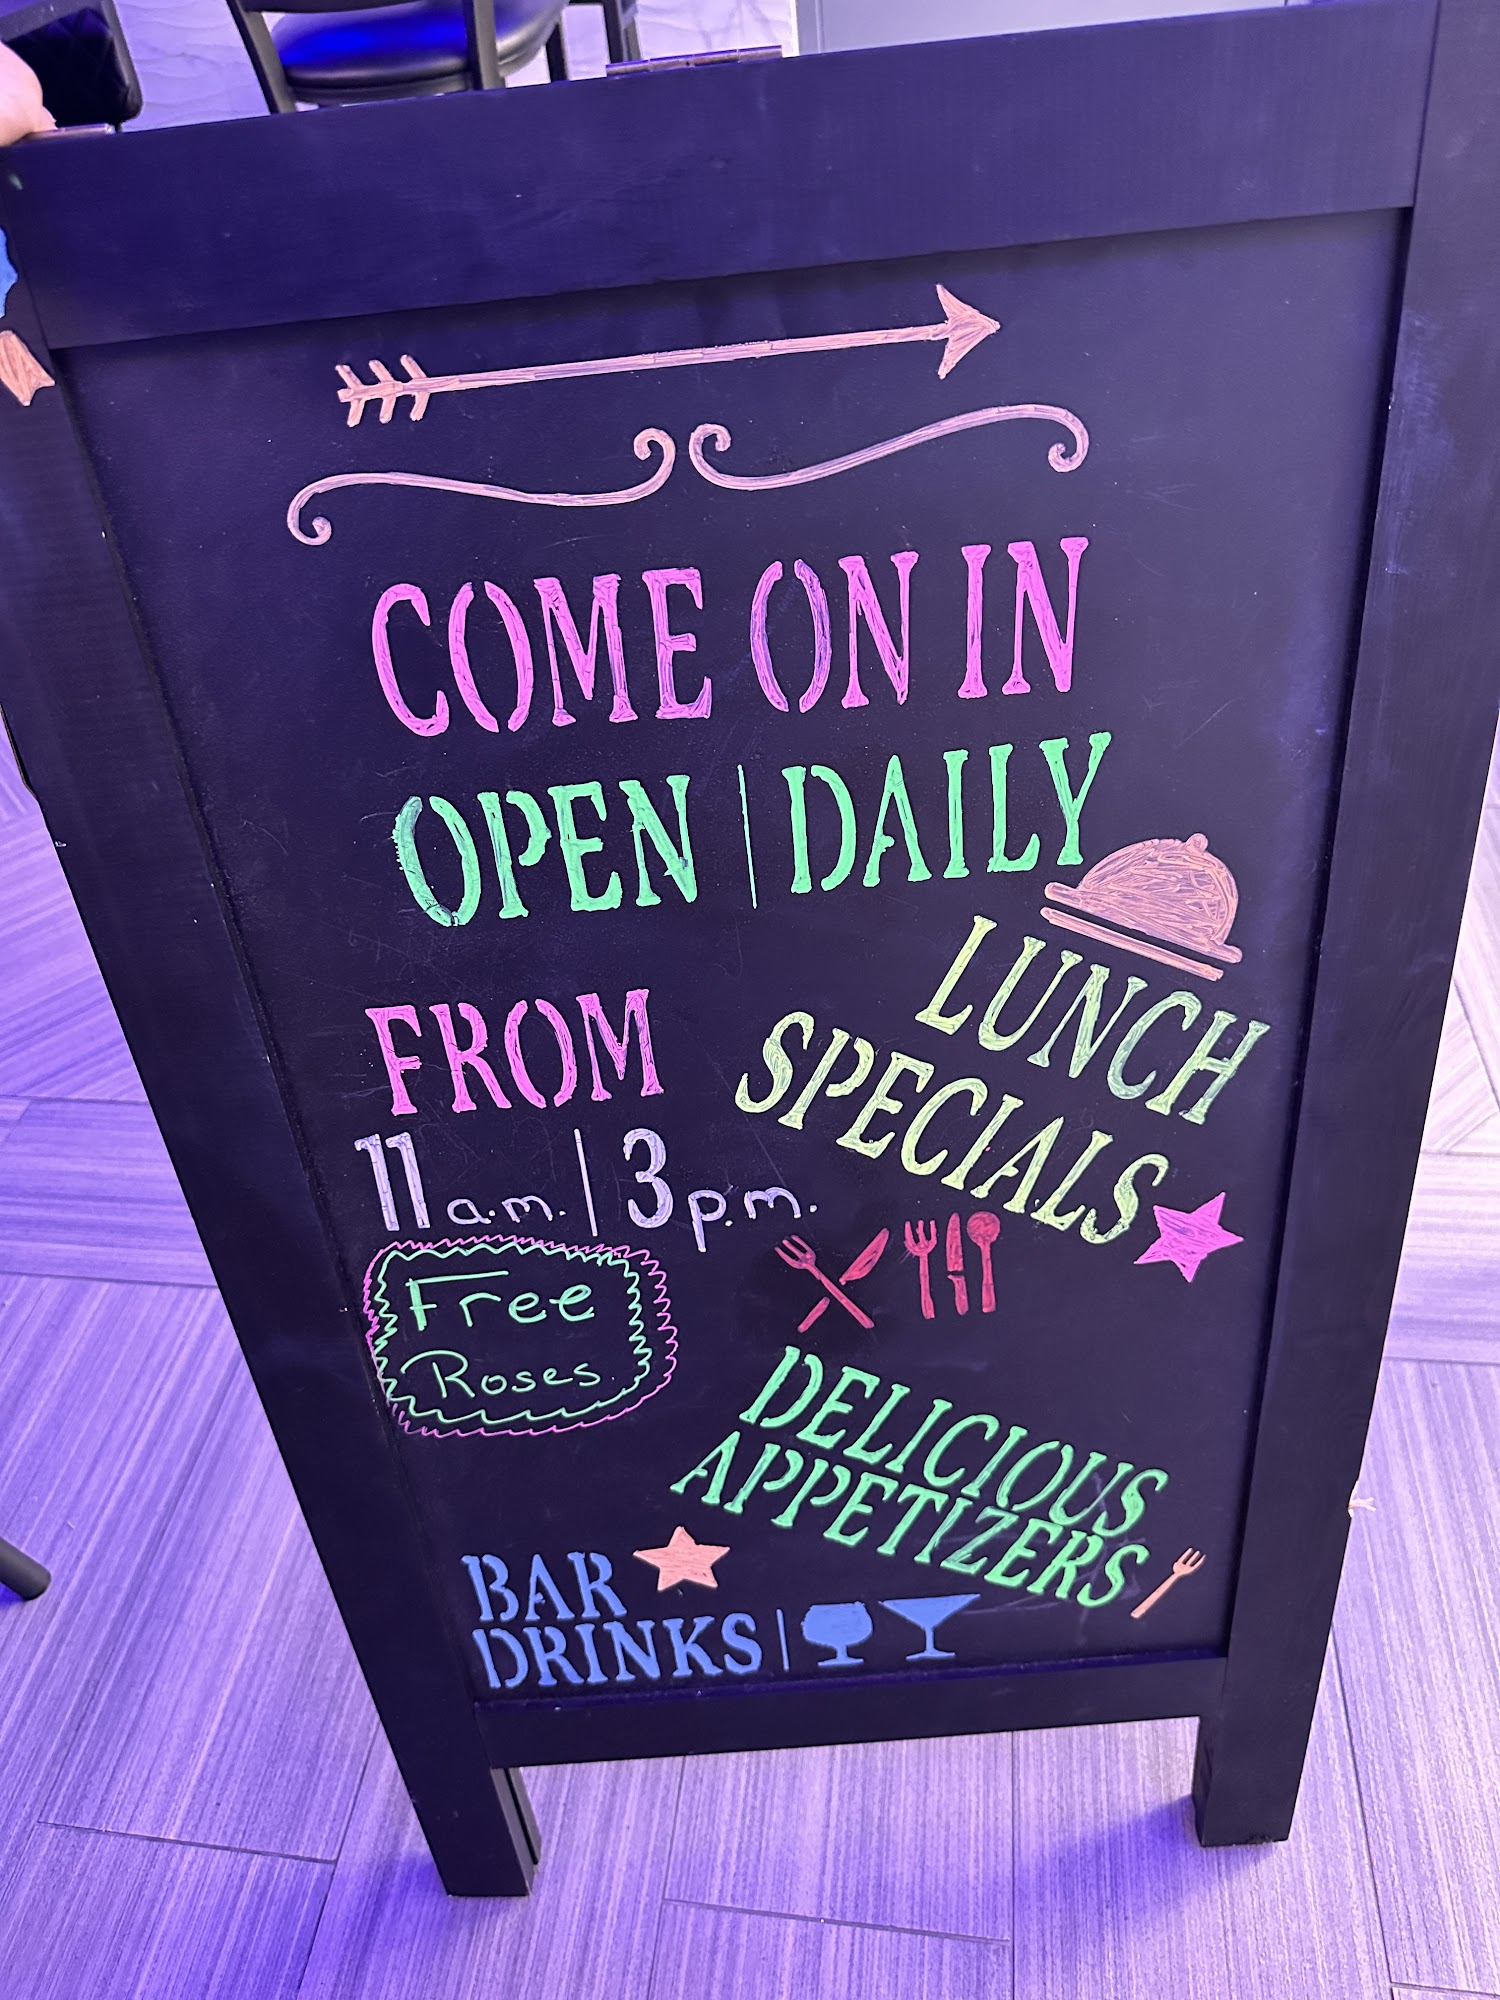 COME ON IN
OPEN | DAILY
LUNCH
SPECIALS
FROM
11 a.m. | 3 p.m.
Free
Roses
DELICIOUS
APPETIZERS
BAR
DRINKS |